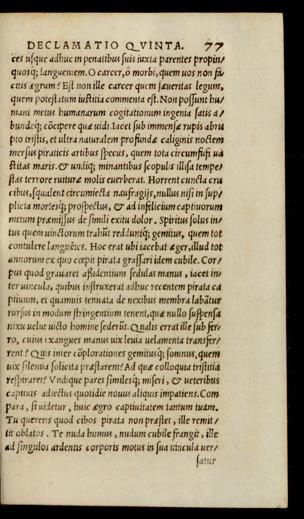 DECLAMATIO QVINTA. 77
ces usque adhuc in penatibus suis iuxta parentes propin/
quosq; languentem. O carcer, ô morbi, quem uos non fa
citis ægrum? Est non ille carcer quem sæueritas legum,
quem potestatum iustitia commenta est. Non possunt hu/
mani metus humanarum cogitationum ingenia satis a/
bundeq; cōcipere quæ uidi. Iacet sub immensæ rupis abru
pto tristis, et ultra naturalem profundæ caliginis noctem
mersus piraticis artibus specus, quem tota circumfusi ua
stitas maris, & undiq; minantibus scopulis illisa tempe/
stas terrore ruituræ molis euerberat. Horrent cuncta cru
cibus, squalent circumiecta naufragijs, nullus nisi in sup/
plicia mortesq; prospectus, & ad infelicium captiuorum
metum præmissus de simili exitu dolor. Spiritus solus in/
tus quem uinctorum trahūt redduntq; gemitus, quem tot
contulere languētes. Hoc erat ubi iacebat æger, illud tot
annorum ex quo cœpit pirata grassari idem cubile. Cor/
pus quod grauaret assidentium sedulas manus, iacet in/
ter uincula, quibus instruxerat adhuc recentem pirata ca
ptiuum, et quamuis tenuata de nexibus membra labātur
rursus in modum stringentium tenent, quæ nullo suspensa
nixu uelut uicto homine sederūt. Qualis errat ille sub fer/
ro, cuius exangues manus uix leuia uelamenta transfer/
rent? Quis inter cōplorationes gemitusq; somnus, quem
uix silentia solicita præstarent? Ad quæ colloquia tristitia
respiraret? Vndique pares similesq; miseri, & ueteribus
captiuis adiectus quotidie nouus aliquis impatiens. Com
para, si uidetur, huic ægro captiuitatem tantum tuam.
Tu quereris quod cibos pirata non præstet, ille remit/
tit oblatos. Te nuda humus, nudum cubile frangit, ille
ad singulos ardentis corporis motus in sua uincula uer/
satur